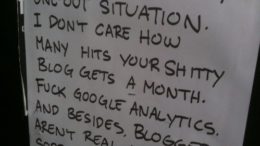 OUT SITUATION.
I DONT CARE HOW
MANY HITS YOUR SHITTY
BLOG GETS A MONTH.
FUCK GOOGLE ANALYTICS.
AND BESIDES, BLOGGE
ARENT REAL